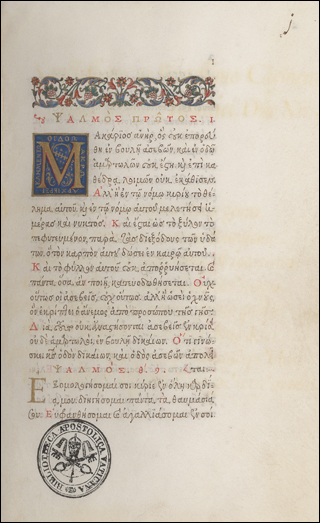 ΨΑΛΜΟΣ ΠΡΩΤΟΣ. 1
Μακάριος ἀνὴρ, ὃς οὐκ ἐπορεύ
θη ἐν βουλῇ ἀσεβῶν, καὶ ἐν ὁδῷ
ἁμαρτωλῶν οὐκ ἔστη, καὶ ἐπὶ κα
θέδρα λοιμῶν οὐκ ἐκάθισεν.
Ἀλλ' ἢ ἐν τῷ νόμῳ κυρίου τὸ θέ
λημα αὐτοῦ, καὶ ἐν τῷ νόμῳ αὐτοῦ μελετήσει ἡ
μέρας καὶ νυκτός. Καὶ ἔσται ὡς τὸ ξύλον τὸ
πεφυτευμένον, παρὰ τὰς διεξόδους τῶν ὑδά
των, ὃ τὸν καρπὸν αὐτοῦ δώσει ἐν καιρῷ αὐτοῦ.
Καὶ τὸ φύλλον αὐτοῦ οὐκ ἀπορρυήσεται, καὶ
πάντα ὅσα ἂν ποιῇ, κατευοδωθήσεται. Οὐχ
οὕτως οἱ ἀσεβεῖς, οὐχ οὕτως, ἀλλ' ἢ ὡσεὶ χνοῦς,
ὃν ἐκρίπτει ὁ ἄνεμος ἀπὸ προσώπου τῆς γῆς.
Διὰ τοῦτο οὐκ ἀναστήσονται ἀσεβεῖς ἐν κρίσει,
οὐδὲ ἁμαρτωλοὶ ἐν βουλῇ δικαίων. Ὅτι γινώ
σκει κύριος ὁδὸν δικαίων, καὶ ὁδὸς ἀσεβῶν ἀπολεῖ
ΨΑΛΜΟΣ. θ. 9. ται.
Ἐξομολογήσομαί σοι κύριε ἐν ὅλῃ καρδίᾳ
μου, διηγήσομαι πάντα τὰ θαυμάσιά
σου. Εὐφρανθήσομαι καὶ ἀγαλλιάσομαι ἐν σοὶ
BIBLIOTHECA APOSTOLICA VATICANA